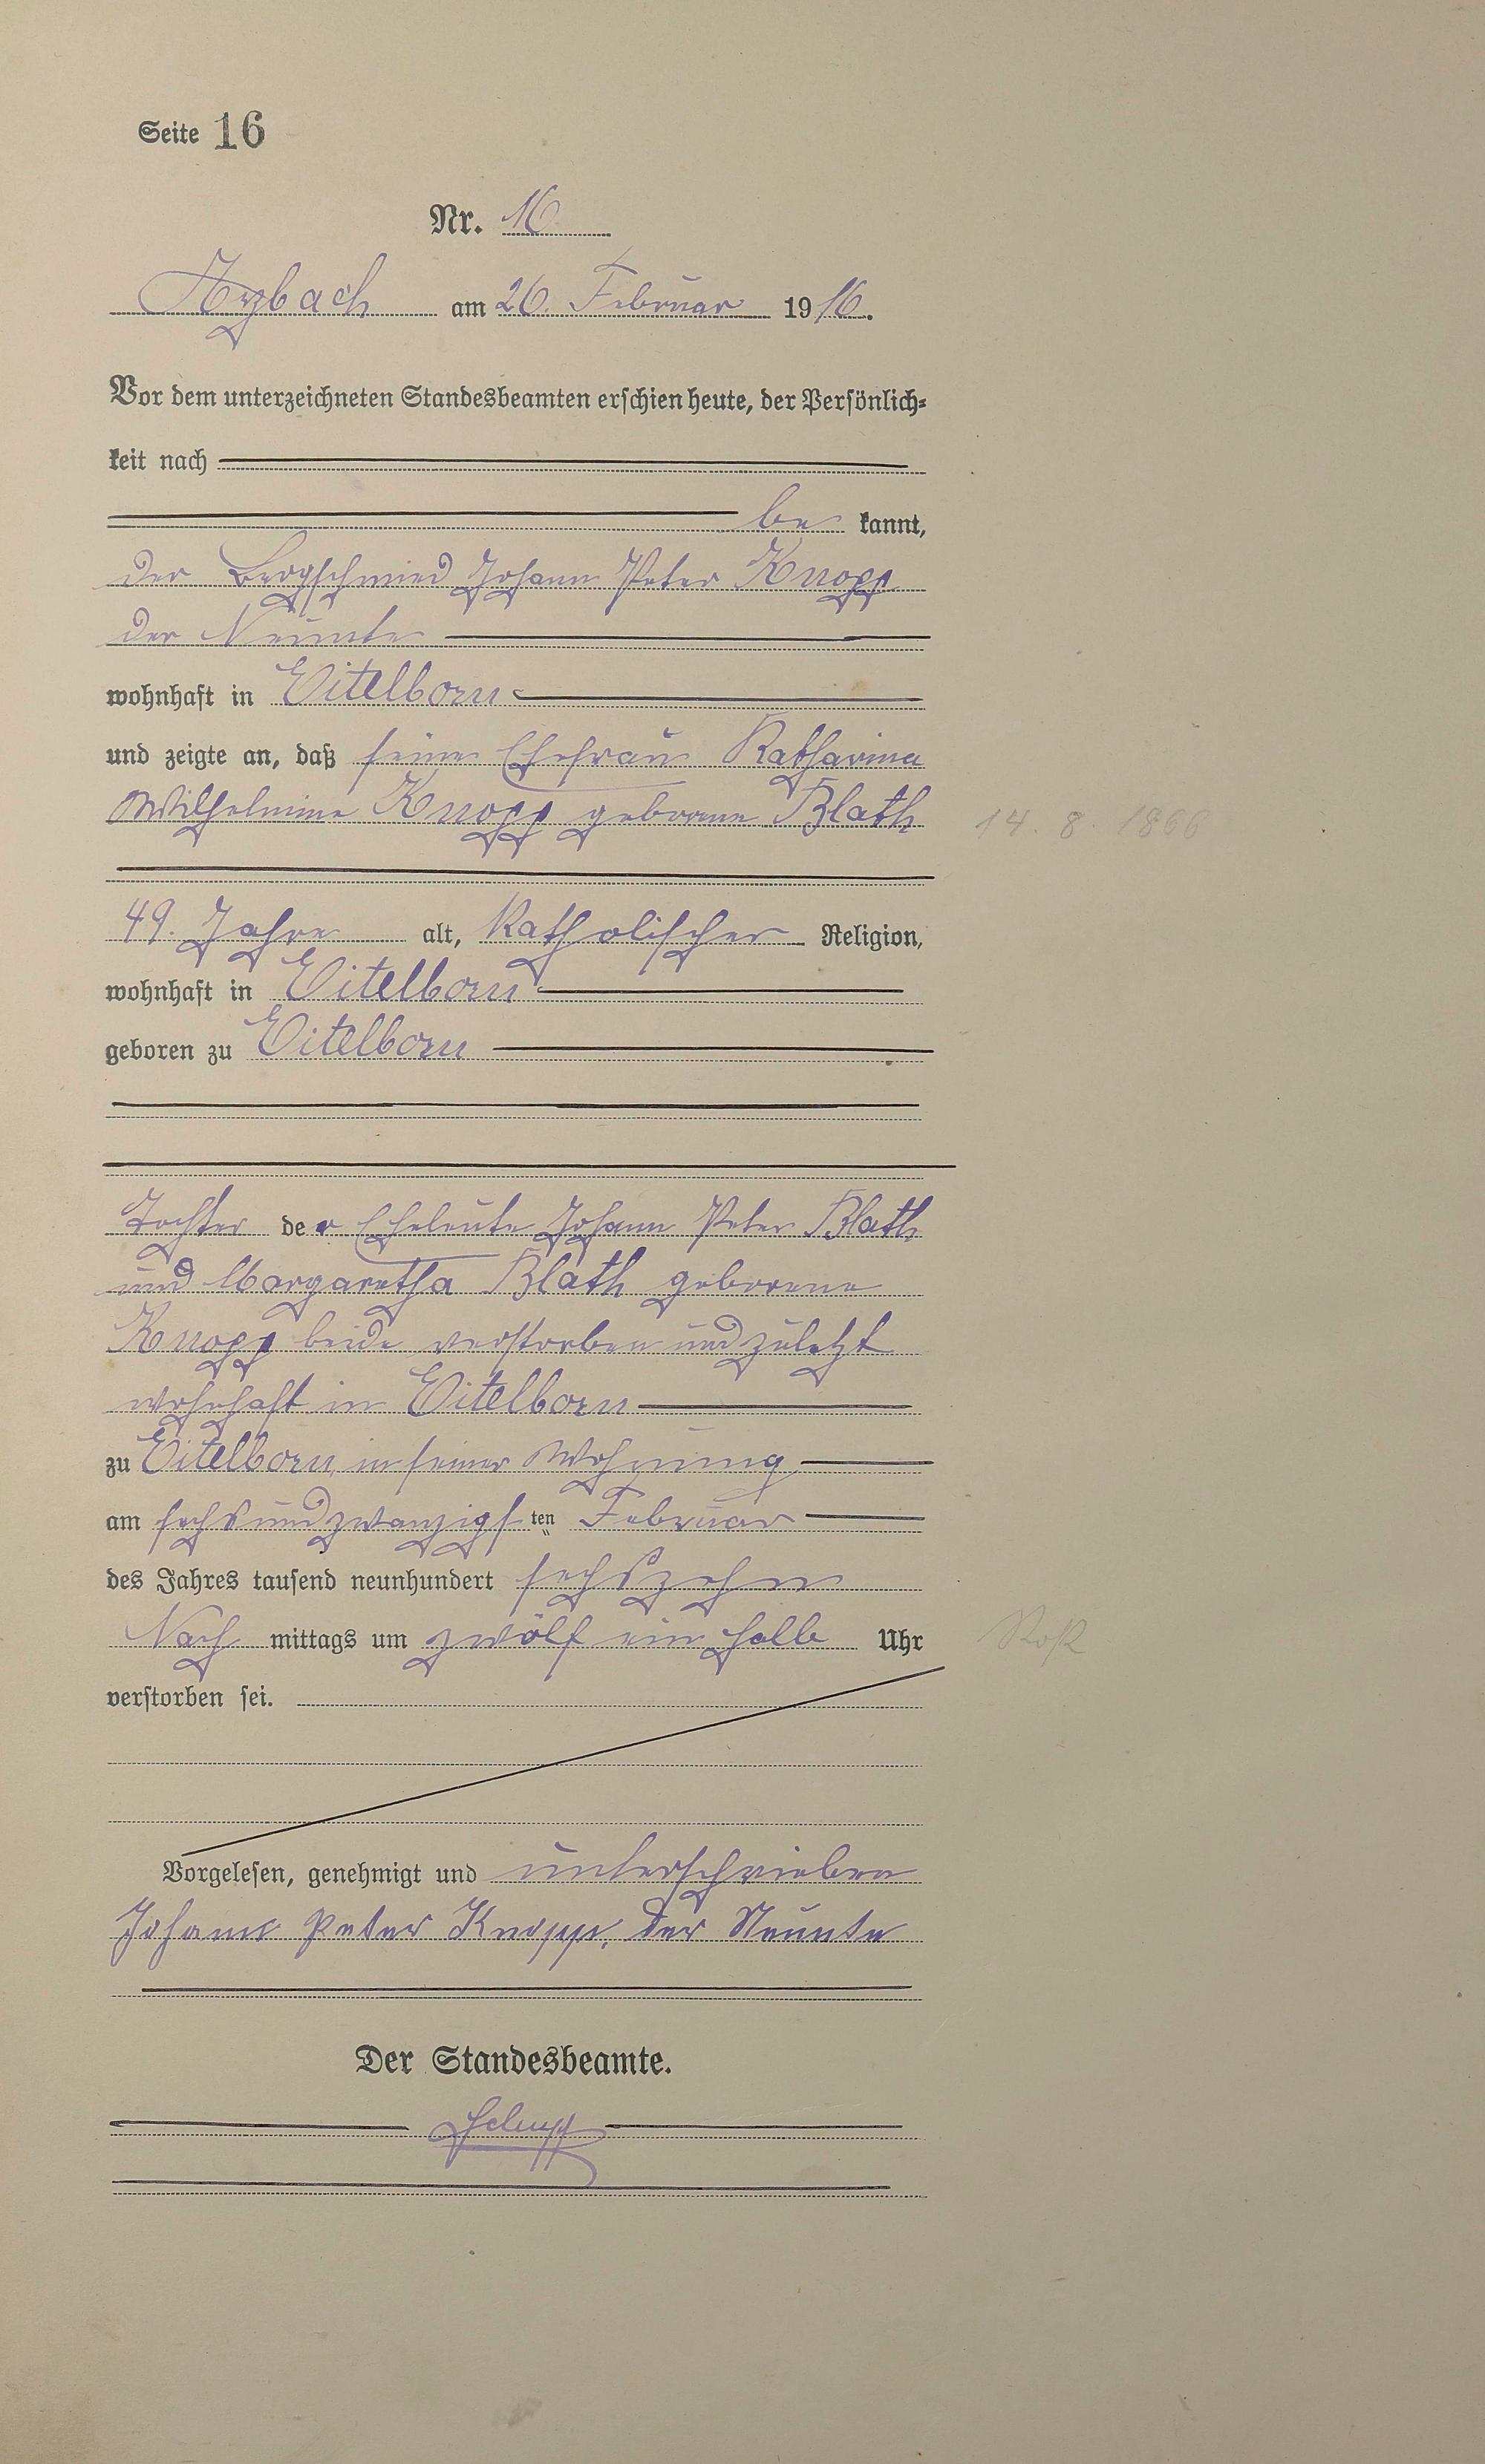 Seite 16
Nr. 16
Arzbach am 26. Februar 1916.
Vor dem unterzeichneten Standesbeamten erschien heute, der Persönlich-
keit nach
be kannt,
der Bergschmied Johann Peter Knopp
der Neunte
wohnhaft in Eitelborn
und zeigte an, daß seine Ehefrau Katharina
Wilhelmine Knopp geborene Blath
14. 8. 1866
49. Jahre alt, Katholischer Religion,
wohnhaft in Eitelborn
geboren zu Eitelborn
Tochter der Eheleute Johann Peter Blath
und Margaretha Blath geborene
Knopp beide verstorben und zuletzt
wohnhaft in Eitelborn
zu Eitelborn, in seiner Wohnung
am sechsundzwanzigsten Februar
des Jahres tausend neunhundert sechszehn
Nach mittags um zwölf ein halb Uhr
verstorben sei.
Vorgelesen, genehmigt und unterschrieben
Johann Peter Knopp, der Neunte
Der Standesbeamte.